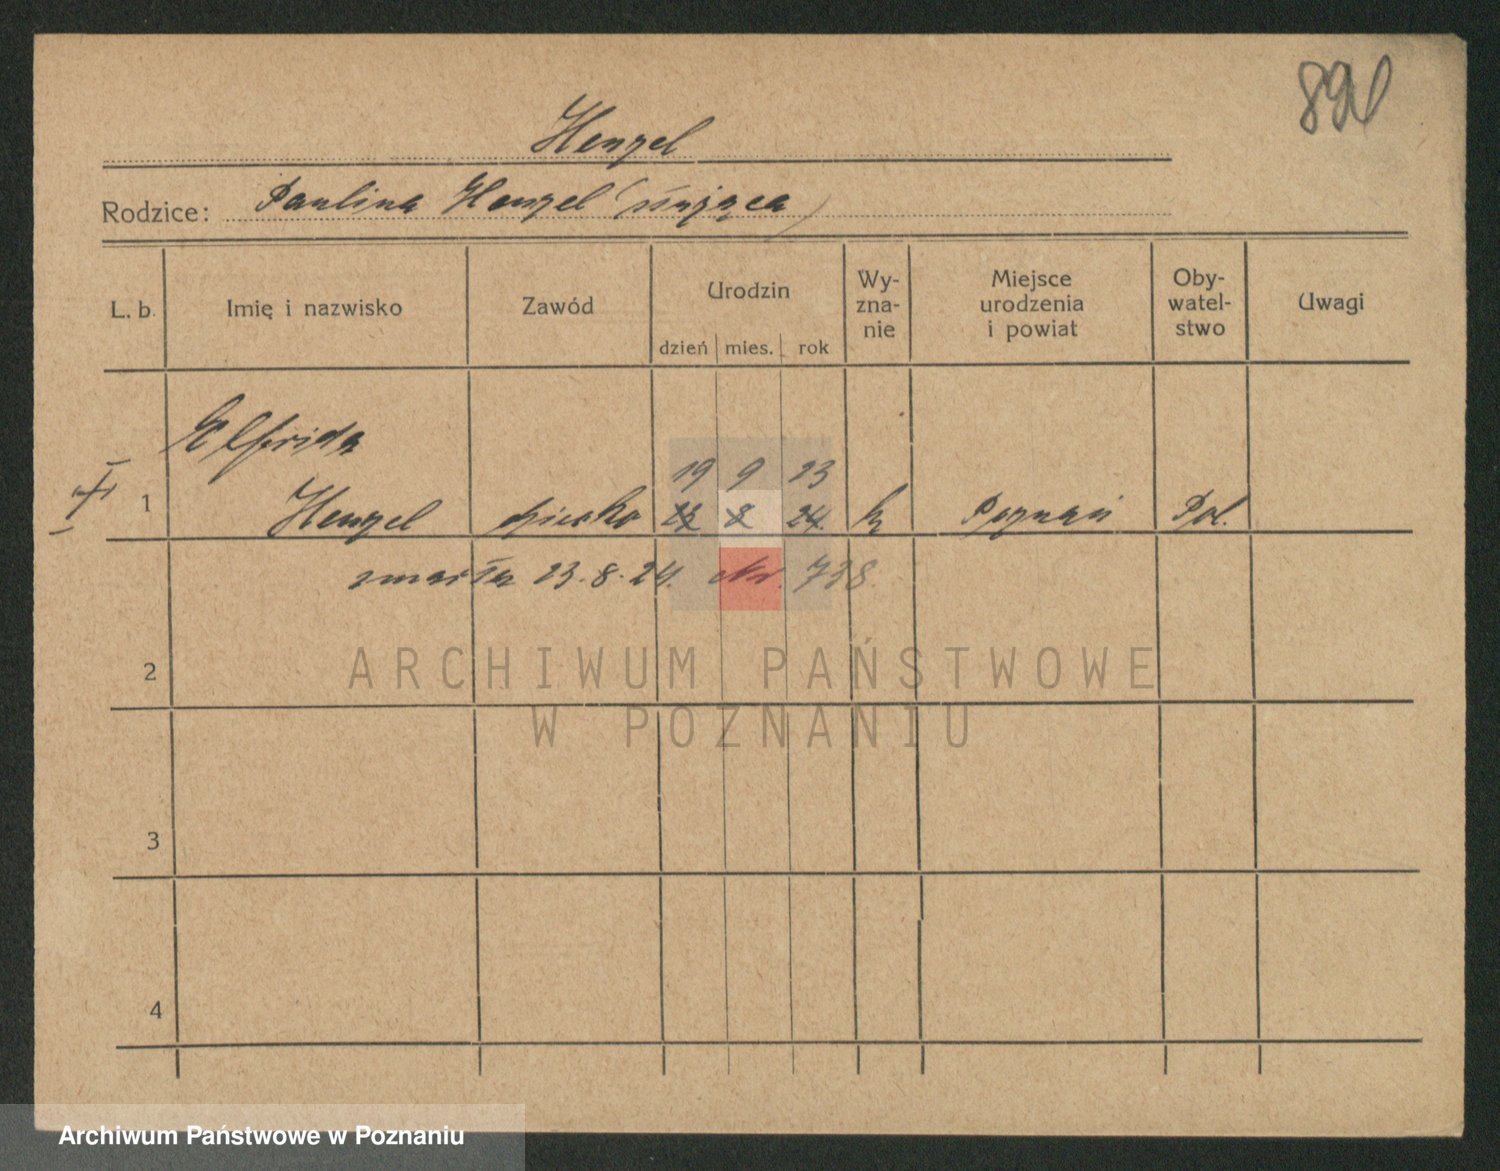 891
Henzel
Rodzice: Paulina Henzel (służąca)
L. b. Imię i nazwisko Zawód Urodzin dzień mies. rok Wy-zna-nie Miejsce urodzenia i powiat Oby-watel-stwo Uwagi
Elfrida 19 9 23
1 Henzel dziecko 8 24. k Poznań Pol.
zmarła 23.8.24. Nr. 738
2
ARCHIWUM PAŃSTWOWE
W POZNANIU
3
4
Archiwum Państwowe w Poznaniu